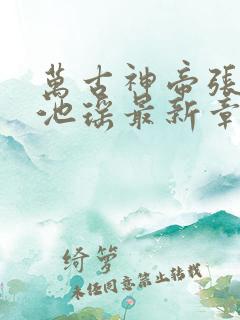 萬古神帝張
池瑤最新章
绮箩
未经同意禁止转载